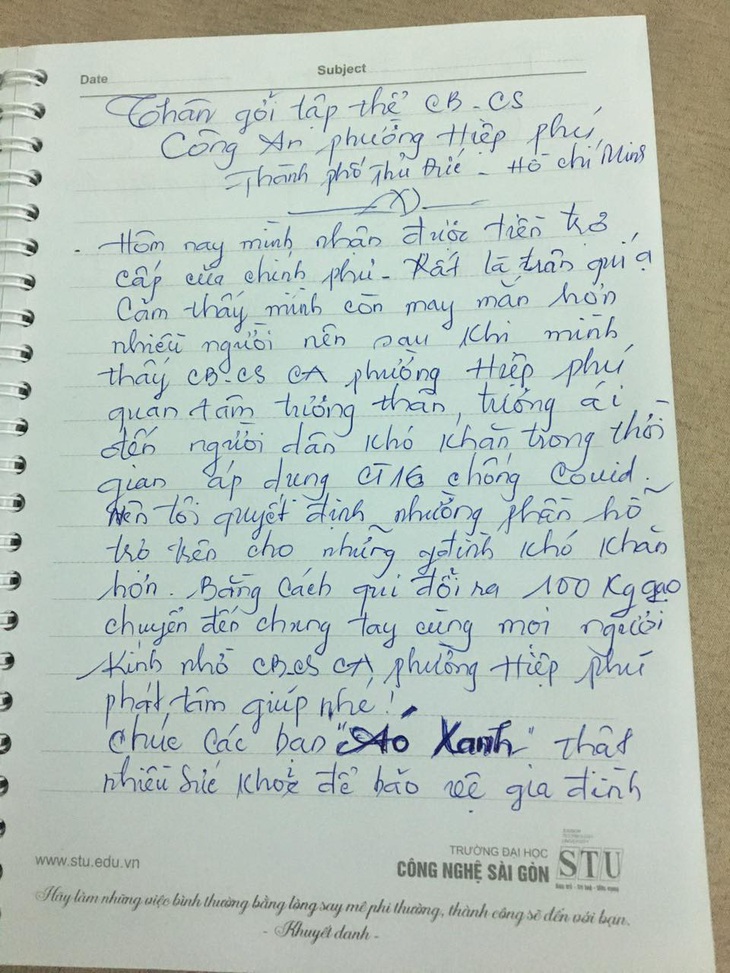 Date
Subject
Thân gởi tập thể CB-CS
Công An phường Hiệp phú,
Thành phố Thủ Đức - Hồ Chí Minh
- Hôm nay mình nhận được tiền trợ
cấp của chính phủ - Rất là trân quí ạ
Cảm thấy mình còn may mắn hơn
nhiều người nên sau khi mình
thấy CB-CS CA phường Hiệp phú
quan tâm tương thân, tương ái
đến người dân khó khăn trong thời
gian áp dụng CT16 chống Covid.
Nên tôi quyết định nhường phần hỗ
trợ trên cho những gđình khó khăn
hơn. Bằng cách qui đổi ra 100 Kg gạo
chuyển đến chung tay cùng mọi người
Kính nhờ CB-CS CA, phường Hiệp phú
phát tâm giúp nhé!
Chúc các bạn "Áo Xanh" thật
nhiều sức khoẻ để bảo vệ gia đình
www.stu.edu.vn
TRƯỜNG ĐẠI HỌC
CÔNG NGHỆ SÀI GÒN
STU
Hãy làm những việc bình thường bằng lòng say mê phi thường, thành công sẽ đến với bạn.
- Khuyết danh -